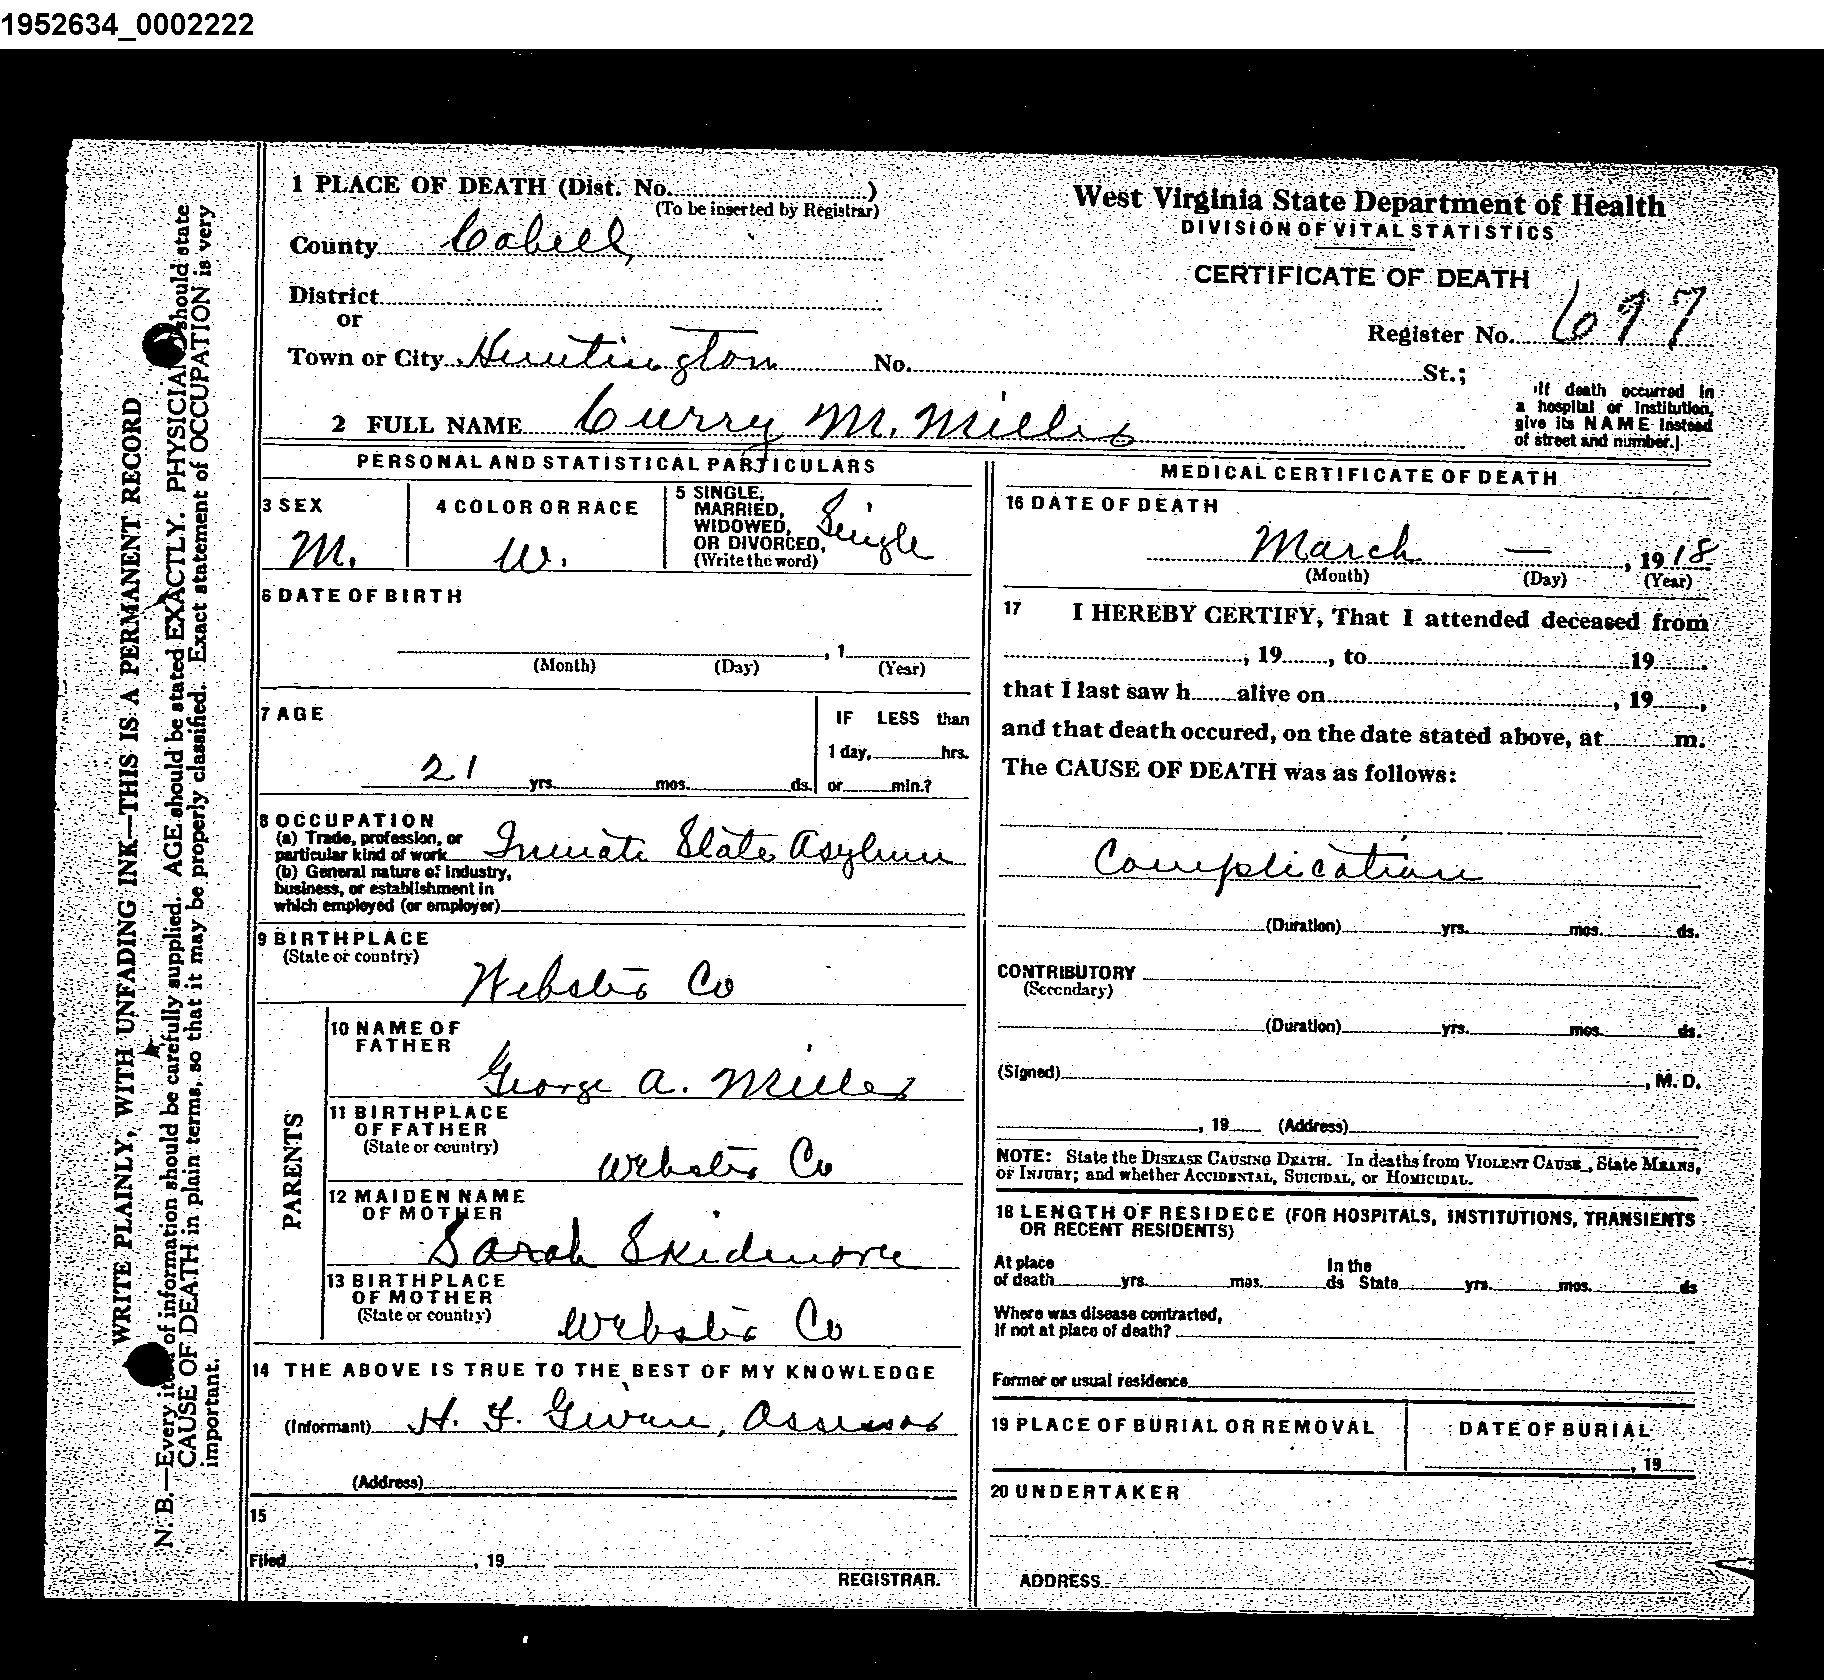 1952634_0002222
WRITE PLAINLY, WITH UNFADING INK—THIS IS A PERMANENT RECORD
N. B.—Every item of information should be carefully supplied. AGE should be stated EXACTLY. PHYSICIANS should state
CAUSE OF DEATH in plain terms, so that it may be properly classified. Exact statement of OCCUPATION is very
important.
1 PLACE OF DEATH (Dist. No. )
(To be inserted by Registrar)
County Cabell,
District
or
Town or City Huntington No. St.;
West Virginia State Department of Health
DIVISION OF VITAL STATISTICS
CERTIFICATE OF DEATH
Register No. 697
If death occurred in
a hospital or institution,
give its NAME instead
of street and number.]
2 FULL NAME Curry M. Miller
PERSONAL AND STATISTICAL PARTICULARS
3 SEX
M.
4 COLOR OR RACE
W.
5 SINGLE,
MARRIED,
WIDOWED,
OR DIVORCED,
(Write the word)
Single
6 DATE OF BIRTH
, 1
(Month) (Day) (Year)
7 AGE
21 yrs. mos. ds.
IF LESS than
1 day, hrs.
or min.?
8 OCCUPATION
(a) Trade, profession, or
particular kind of work Inmate State Asylum
(b) General nature of industry,
business, or establishment in
which employed (or employer)
9 BIRTHPLACE
(State or country)
Webster Co
PARENTS
10 NAME OF
FATHER
George A. Miller
11 BIRTHPLACE
OF FATHER
(State or country)
Webster Co
12 MAIDEN NAME
OF MOTHER
Sarah Skidmore
13 BIRTHPLACE
OF MOTHER
(State or country)
Webster Co
14 THE ABOVE IS TRUE TO THE BEST OF MY KNOWLEDGE
(Informant) H. F. Givan, Assessor
(Address)
15
Filed , 19
REGISTRAR.
MEDICAL CERTIFICATE OF DEATH
16 DATE OF DEATH
March — , 1918
(Month) (Day) (Year)
17 I HEREBY CERTIFY, That I attended deceased from
, 19 , to 19 .
that I last saw h alive on , 19 ,
and that death occured, on the date stated above, at m.
The CAUSE OF DEATH was as follows:
Complication
(Duration) yrs. mos. ds.
CONTRIBUTORY
(Secondary)
(Duration) yrs. mos. ds.
(Signed) , M. D.
, 19 (Address)
NOTE: State the DISEASE CAUSING DEATH. In deaths from VIOLENT CAUSE, State MEANS,
OF INJURY; and whether ACCIDENTAL, SUICIDAL, or HOMICIDAL.
18 LENGTH OF RESIDECE (FOR HOSPITALS, INSTITUTIONS, TRANSIENTS
OR RECENT RESIDENTS)
At place In the
of death yrs. mos. ds State yrs. mos. ds
Where was disease contracted,
If not at place of death?
Former or usual residence
19 PLACE OF BURIAL OR REMOVAL
DATE OF BURIAL
, 19
20 UNDERTAKER
ADDRESS